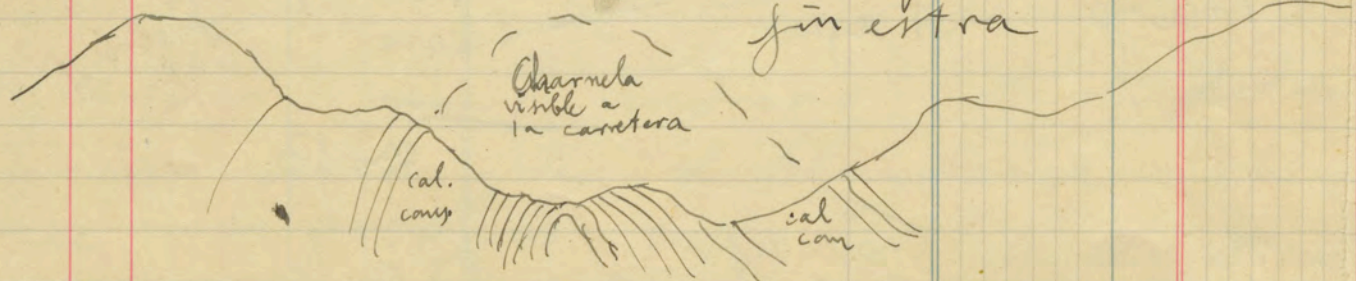 finestra
Charnela
visible a
la carretera
cal.
comp
cal
com